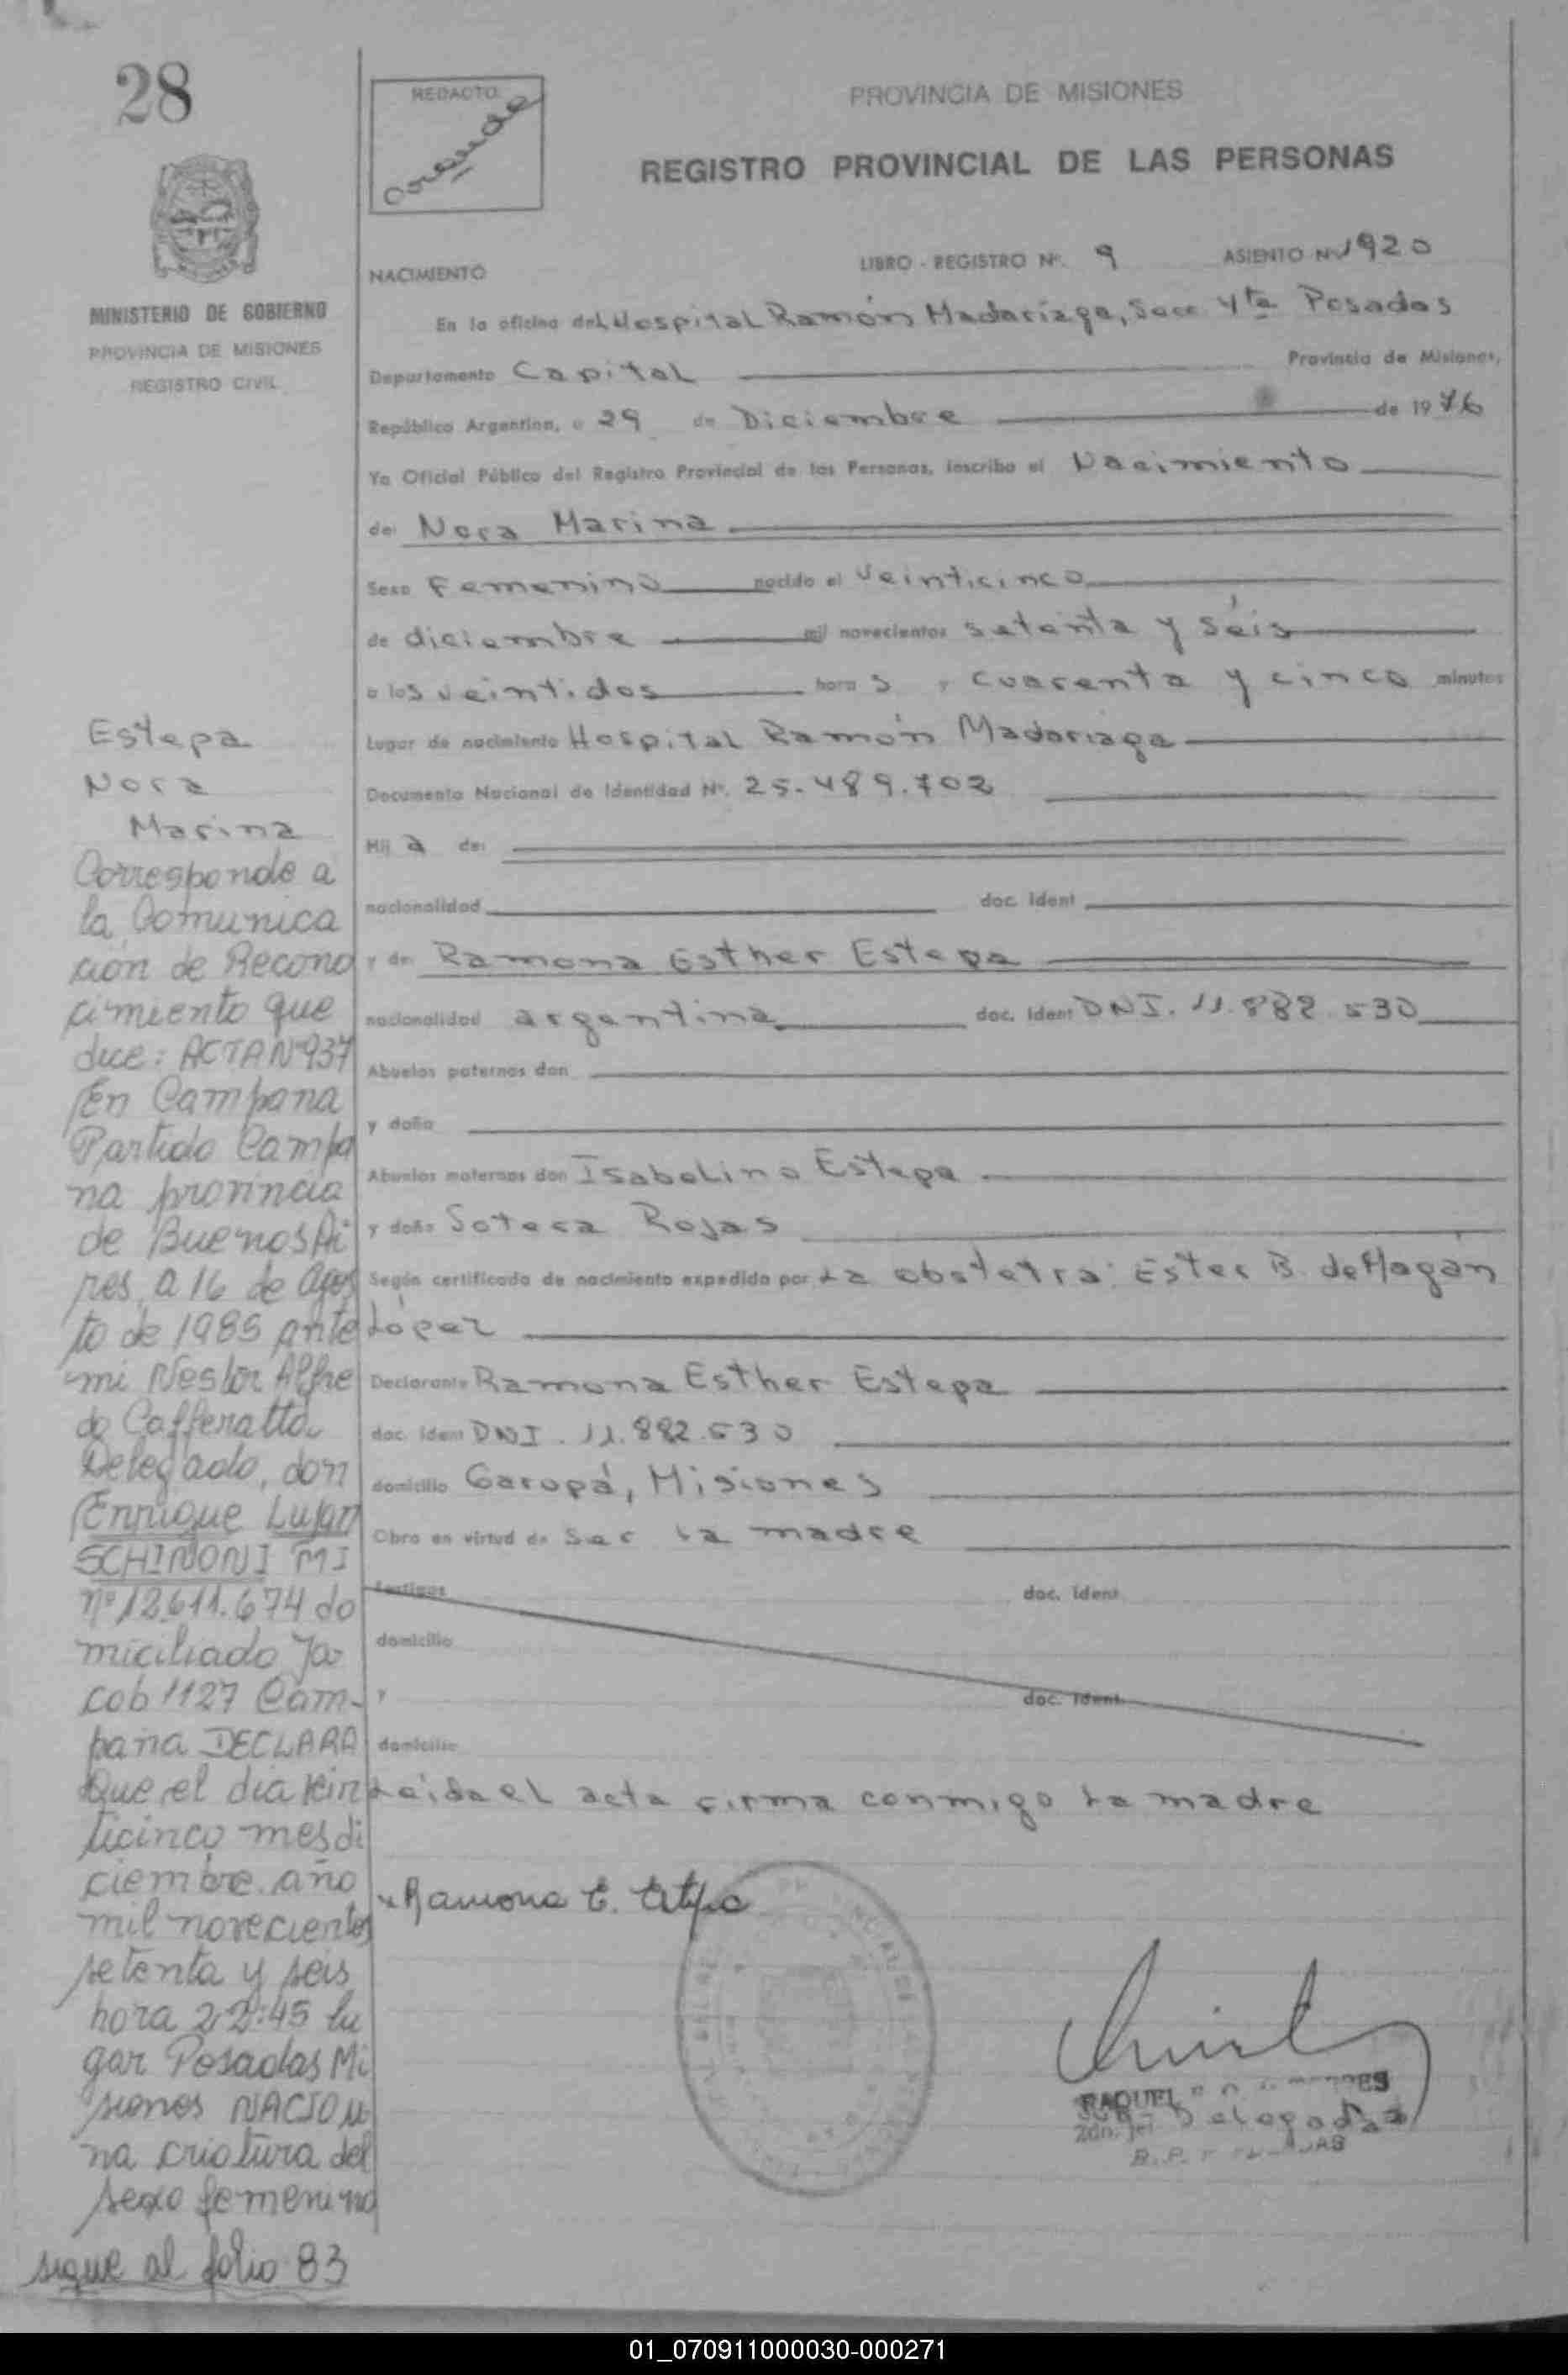 28
REDACTO
PROVINCIA DE MISIONES
REGISTRO PROVINCIAL DE LAS PERSONAS
NACIMIENTO
LIBRO - REGISTRO Nº. 9 ASIENTO Nº 1920
MINISTERIO DE GOBIERNO
PROVINCIA DE MISIONES
REGISTRO CIVIL
En la oficina del Hospital Ramón Madariaga, Secc 4ta Posadas
Departamento Capital Provincia de Misiones,
República Argentina, a 29 de Diciembre de 1976
Yo Oficial Público del Registro Provincial de las Personas, inscribo el Nacimiento
de: Nora Marina
Sexo Femenino nacido el veinticinco
de diciembre mil novecientos setenta y séis
a las veintidos horas y cuarenta y cinco minutos
Lugar de nacimiento Hospital Ramón Madariaga
Documento Nacional de Identidad Nº. 25.489.702
Hij a de:
nacionalidad doc. ident
y de Ramona Esther Estepa
nacionalidad argentina doc. ident DNI. 11.882.530
Abuelos paternos don
y doña
Abuelos maternos don Isabelino Estepa
y doña Rojas
Según certificado de nacimiento expedido por La obstetra: Ester B. de
López
Declarante Ramona Esther Estepa
doc. ident DNI. 11.882.530
domicilio Garupá, Misiones
Obra en virtud de ser la madre
testigos doc. ident
domicilio
y doc. ident
domicilio
Leída el acta firma conmigo la madre
Ramona E. Estepa
RAQUEL
Delegada
Estepa
Nora
Marina
Corresponde a
la Comunica
ción de Recono
cimiento que
dice: ACTA Nº 937
En Campana
Partido Campa
na provincia
de Buenos Ai
res, a 16 de Agos
to de 1985 ante
mi Nestor Alfre
do Cafferatta
Delegado, don
Enrique Lujan
SCHINONI MI
nº 12.611.674 do
miciliado Ja
cob 1127 Cam-
pana DECLARA
Que el dia vein
ticinco mes di
ciembre año
mil novecientos
setenta y seis
hora 22:45 lu
gar Posadas Mi
siones NACIO u
na criatura del
sexo femenino
sigue al folio 83
01_070911000030-000271